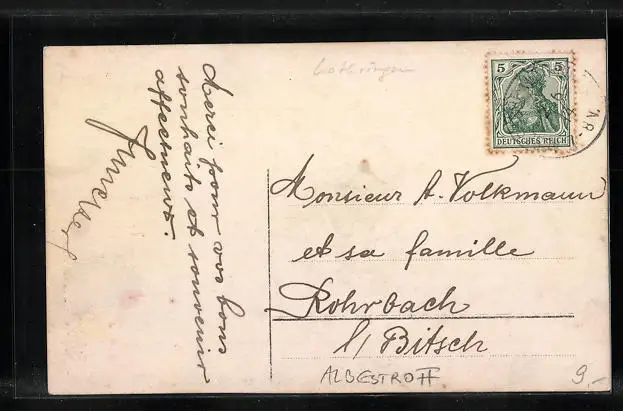 Merci pour vos bons
souhaits et souvenir
affectueux.
Lothringen
5 5
DEUTSCHES REICH
Monsieur A. Volkmann
et sa famille
Rohrbach
b/ Bitsch
ALBESTROFF
9.-